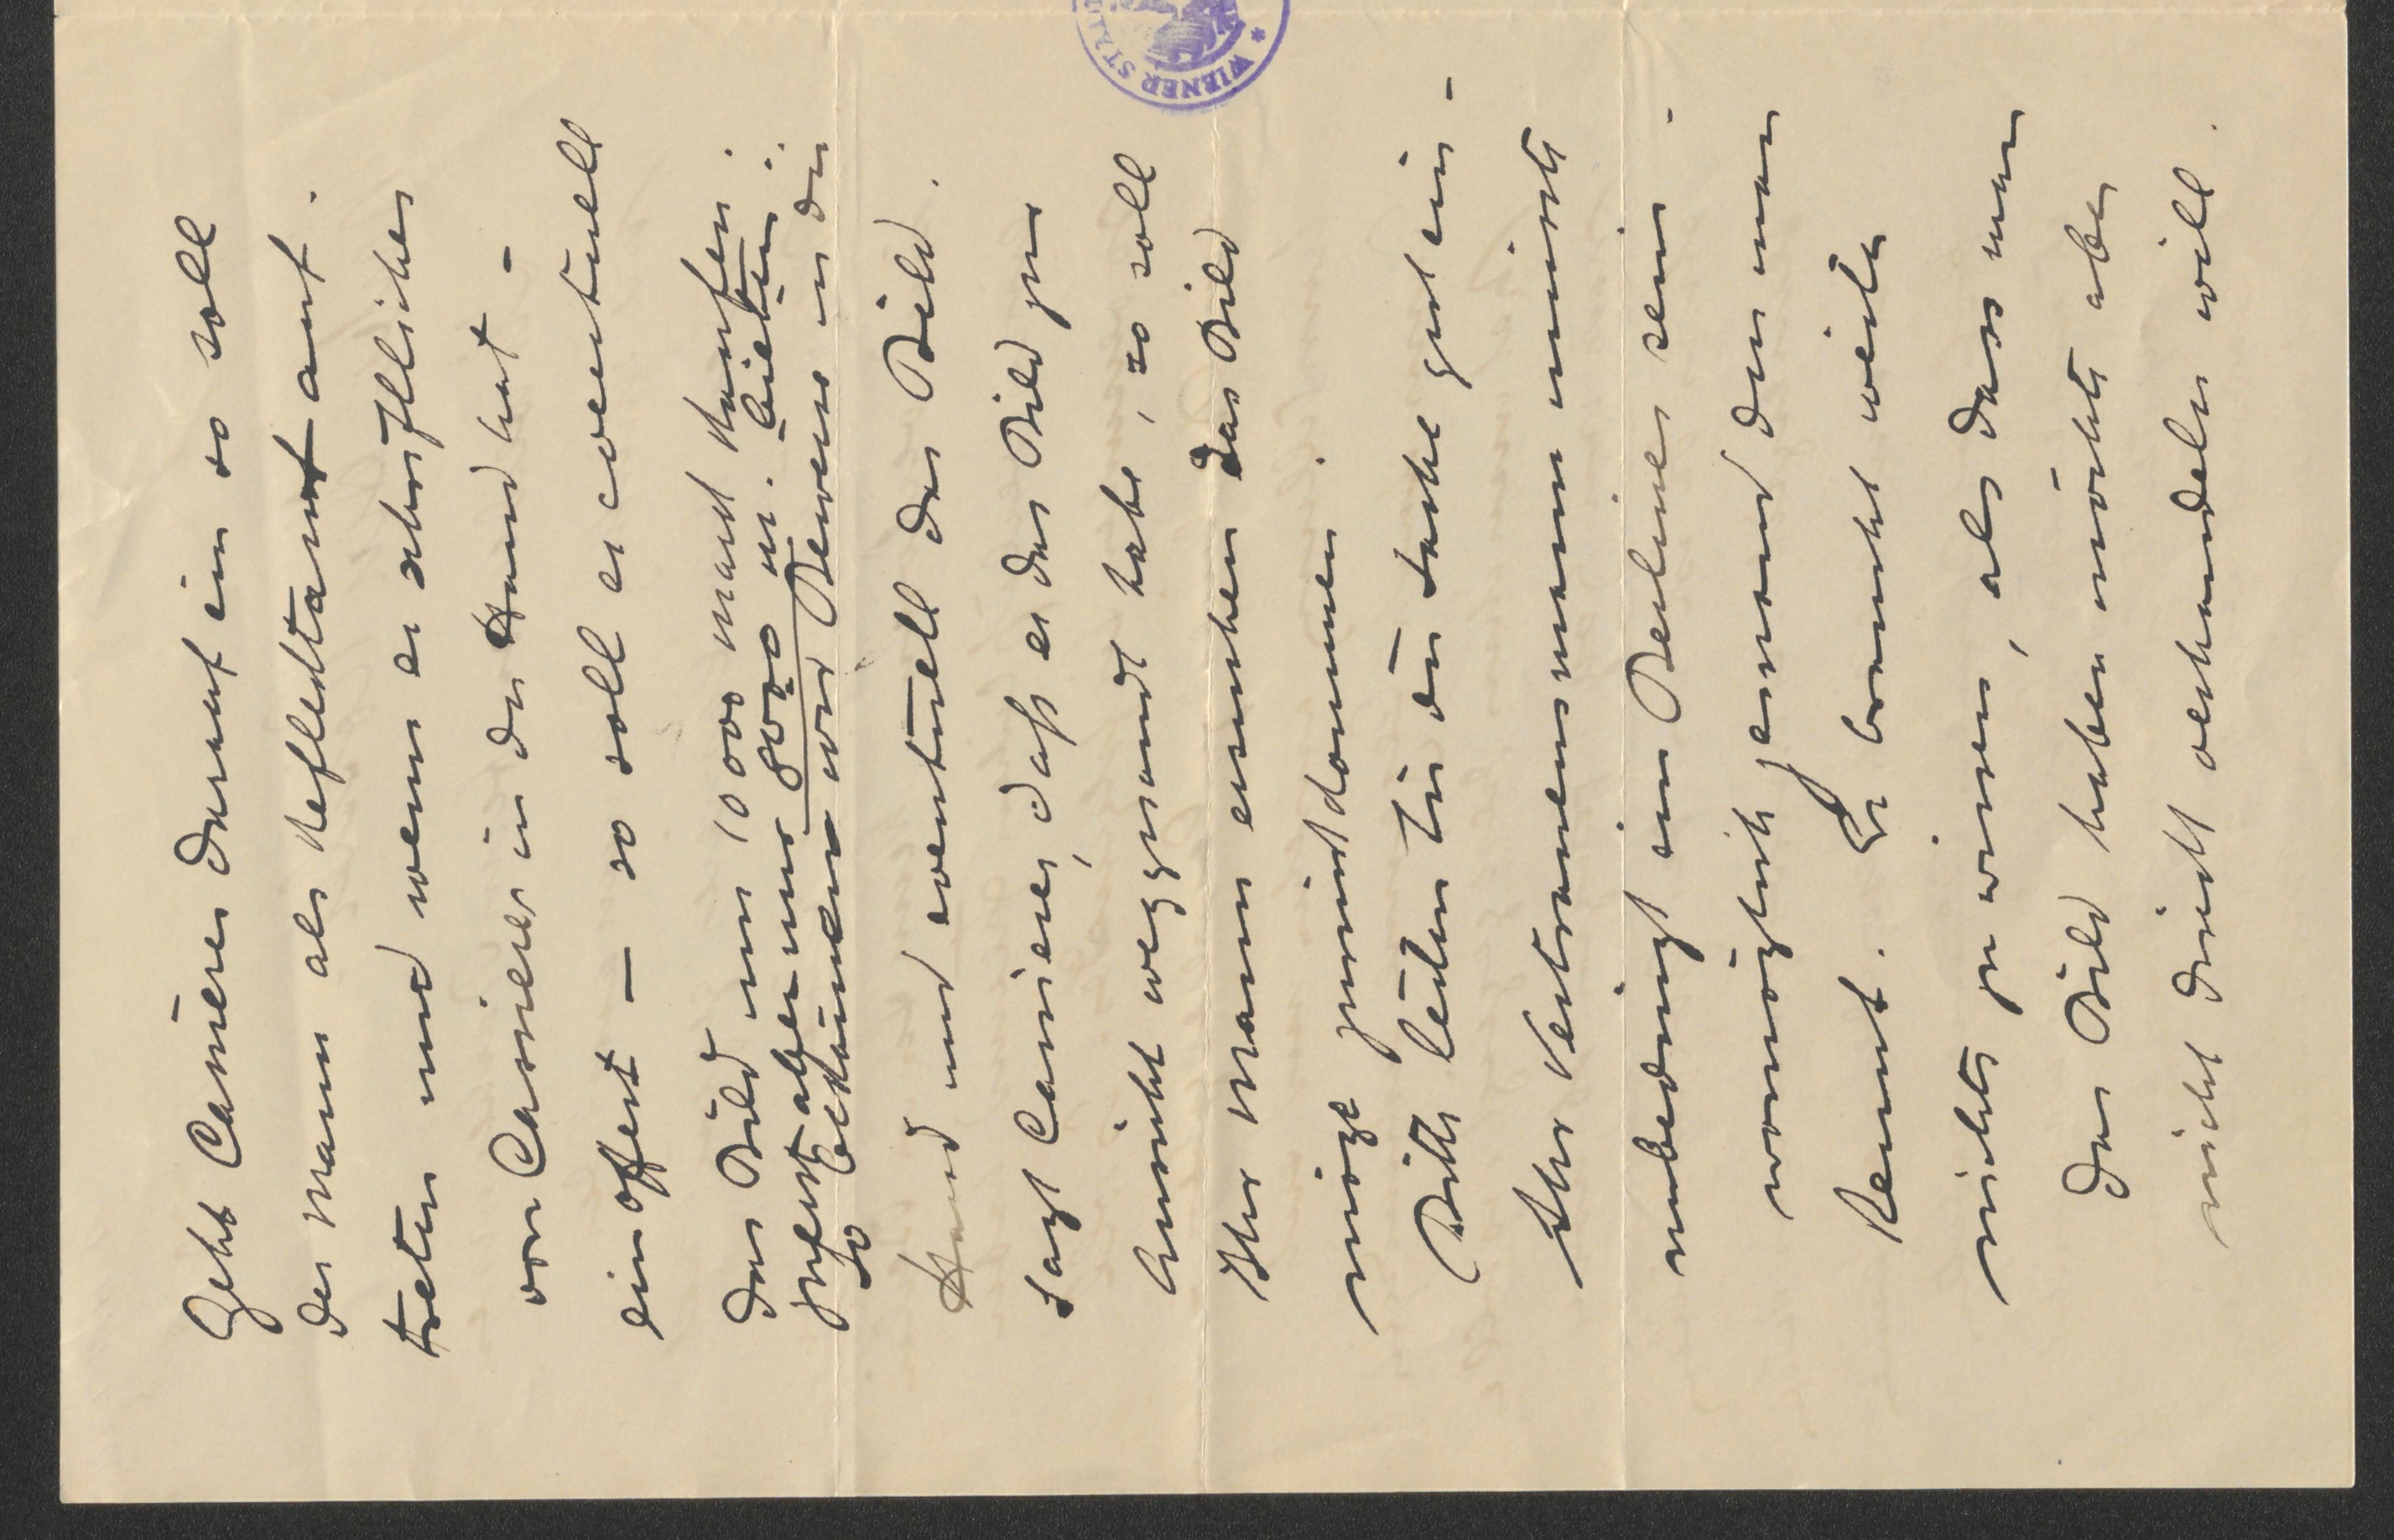 Geht Cassierer darauf ein so soll
der Mann als Reflektant auf-
treten und wenn er schriftliches
von Cassierer in der Hand hat –
ein Offert — so soll er eventuell
das Bild um 10 000 Mark kaufen.
zuerst aber nur 8000 M. bieten..
So bekämen wir Beweise in die
Hand und eventuell das Bild.
Sagt Cassierer, dass er das Bild zur
Ansicht weggesandt habe, so soll
Ihr Mann ersuchen das Bild
möge zurückkommen.
Bitte leiten Sie die Sache gut ein –
Ihr Vertrauensmann müsste
unbedingt ein Berliner sein –
womöglich jemand den man
kennt. Er braucht weiter
nichts zu wissen, als dass man
das Bild haben möchte aber
nicht direkt verhandeln will.
WIENER